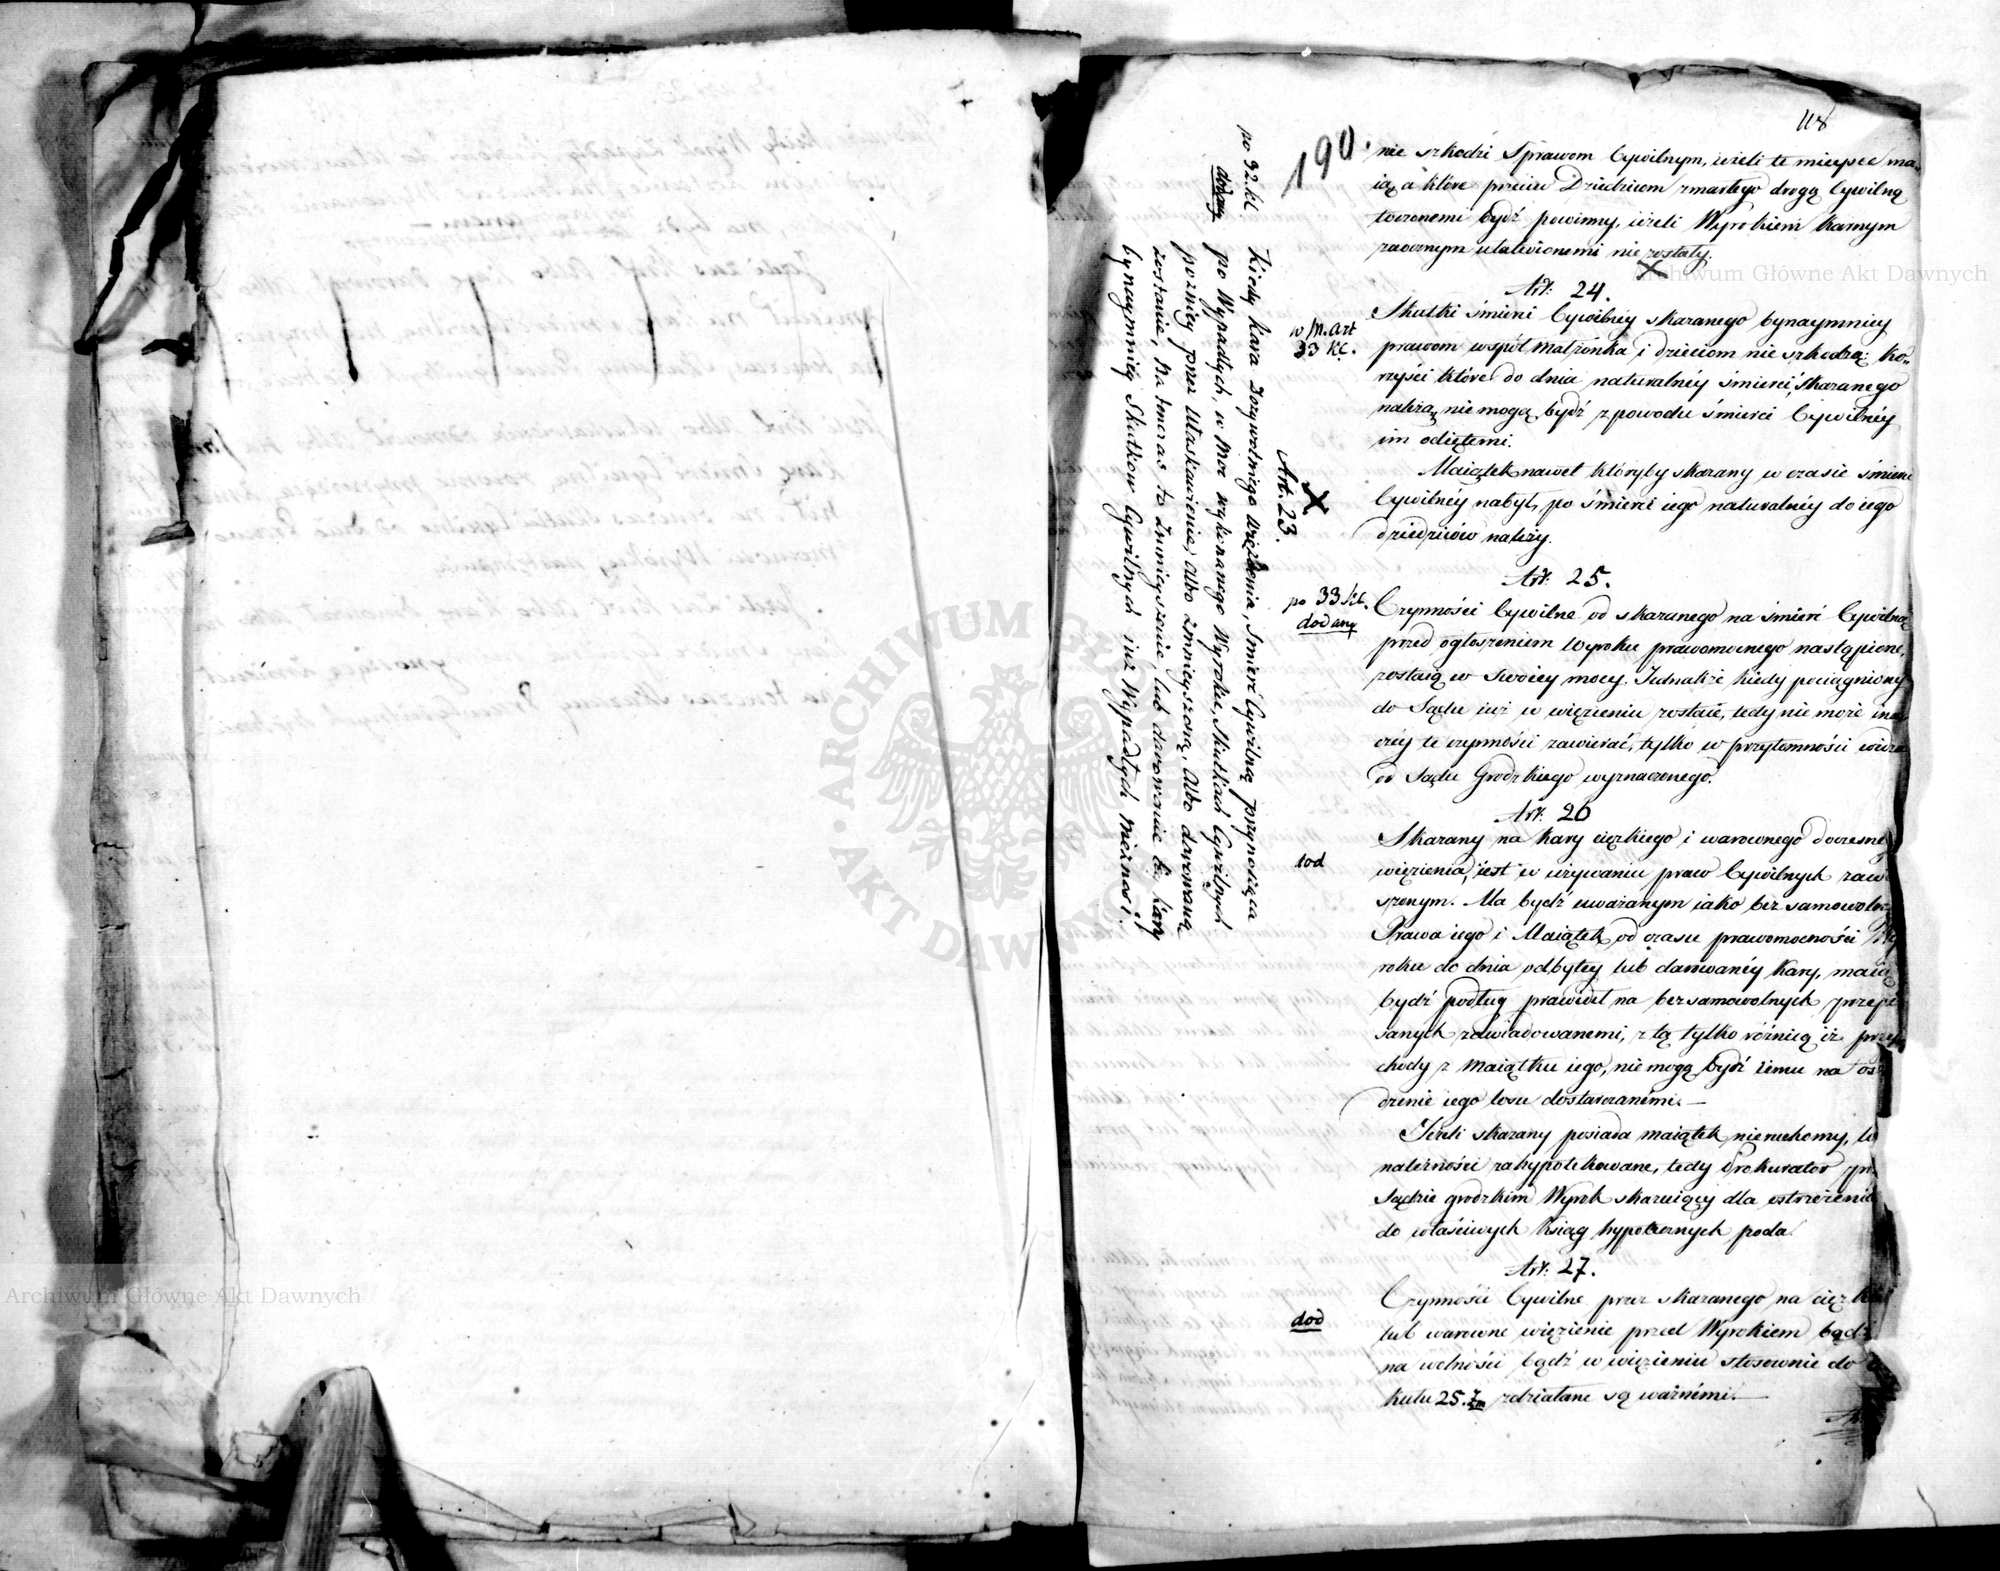 118
190.
nie szkodzi Sprawom Cywilnym, ieżeli te mieysce ma„
ią a które przeciw Dziedzicom zmarłego drogą Cywilną
toczonemi bydź powinny, ieżeli Wyrokiem Karnym
zaocznym ułatwionemi nie zostały.
Art: 24.
w M. Art
33 KC.
Skutki śmierci Cywilney skazanego bynaymniey
prawom współ małżonka i dzieciom nie szkodzą: ko„
rzyści które do dnia naturalnéy śmierci skazanego
należą, nie mogą bydź z powodu śmierci Cywilnéy
im odiętemi.
Maiątek nawet któryby skazany w czasie śmierci
Cywilnéy nabył, po śmierci iego naturalnéy do iego
dziedziców należy.
Art: 25.
po 33 kl.
dodany
Czynności Cywilne od skazanego na śmierć Cywilną
przed ogłoszeniem Wyroku prawomocnego nastąpione,
zostaią w swoiey mocy. Jednakże kiedy pociągniony
do Sądu iuż w więzieniu zostaie, tedy nie może ina
czéy te czynności zawierać, tylko w przytomności
od Sądu Grodzkiego wyznaczonego.
Art: 26
dod
Skazany na kary ciężkiego i warownego doczesne
więzienia, iest w używaniu praw Cywilnych zaw
szonym. Ma bydź uważanym iako bez samowolny
Prawa iego i Maiątek, od czasu prawomocności Wy
roku do dnia odbytey lub darowanéy kary, maią
bydź podług prawideł na bezsamowolnych przepi
sanych zawiadowanemi, z tą tylko różnicą iż przy
chody z maiątku iego, nie mogą bydź iemu na os
dzenie iego losu dostarczanémi. —
Jeżeli skazany posiada maiątek nieruchomy, lu
należności zahypotekowane, tedy Prokurator prz
Sądzie grodzkim Wyrok skazuiący dla ostrzeżenia
do właściwych Ksiąg hypotecznych poda.
Art: 27.
dod
Czynności Cywilne przez skazanego na ciężkie
lub warowne więzienie przed Wyrokiem bądź
na wolności bądź w więzieniu stosownie do
kułu 25. zdziałane są ważnémi. —
Art. 23.
po 32 kl.
dodany
Kiedy kara Dożywotniego więzienia, Śmierć Cywilną przynosząca
po Wypadłych, w Moc wykonanego Wyroku, Skutkach Cywilnych
pózniey przez Ułaskawienie, albo zmnieyszoną, Albo darowaną
zostanie, Na tenczas to Zmnieyszenie, lub darowanie téy kary
bynaymniey Skutków Cywilnych iuż Wypadłych nieznosi.
Archiwum Główne Akt Dawnych
Archiwum Główne Akt Dawnych
ARCHIWUM GŁÓWNE AKT DAWNYCH